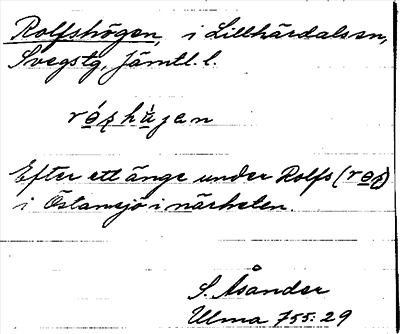 Rolfshögen, i Lillhärdalssn,
Svegstg, Jämtl. l.
Efter ett änge under Rolfs
i Östansjö i närheten.
S. Åsander
Ulma 755:29